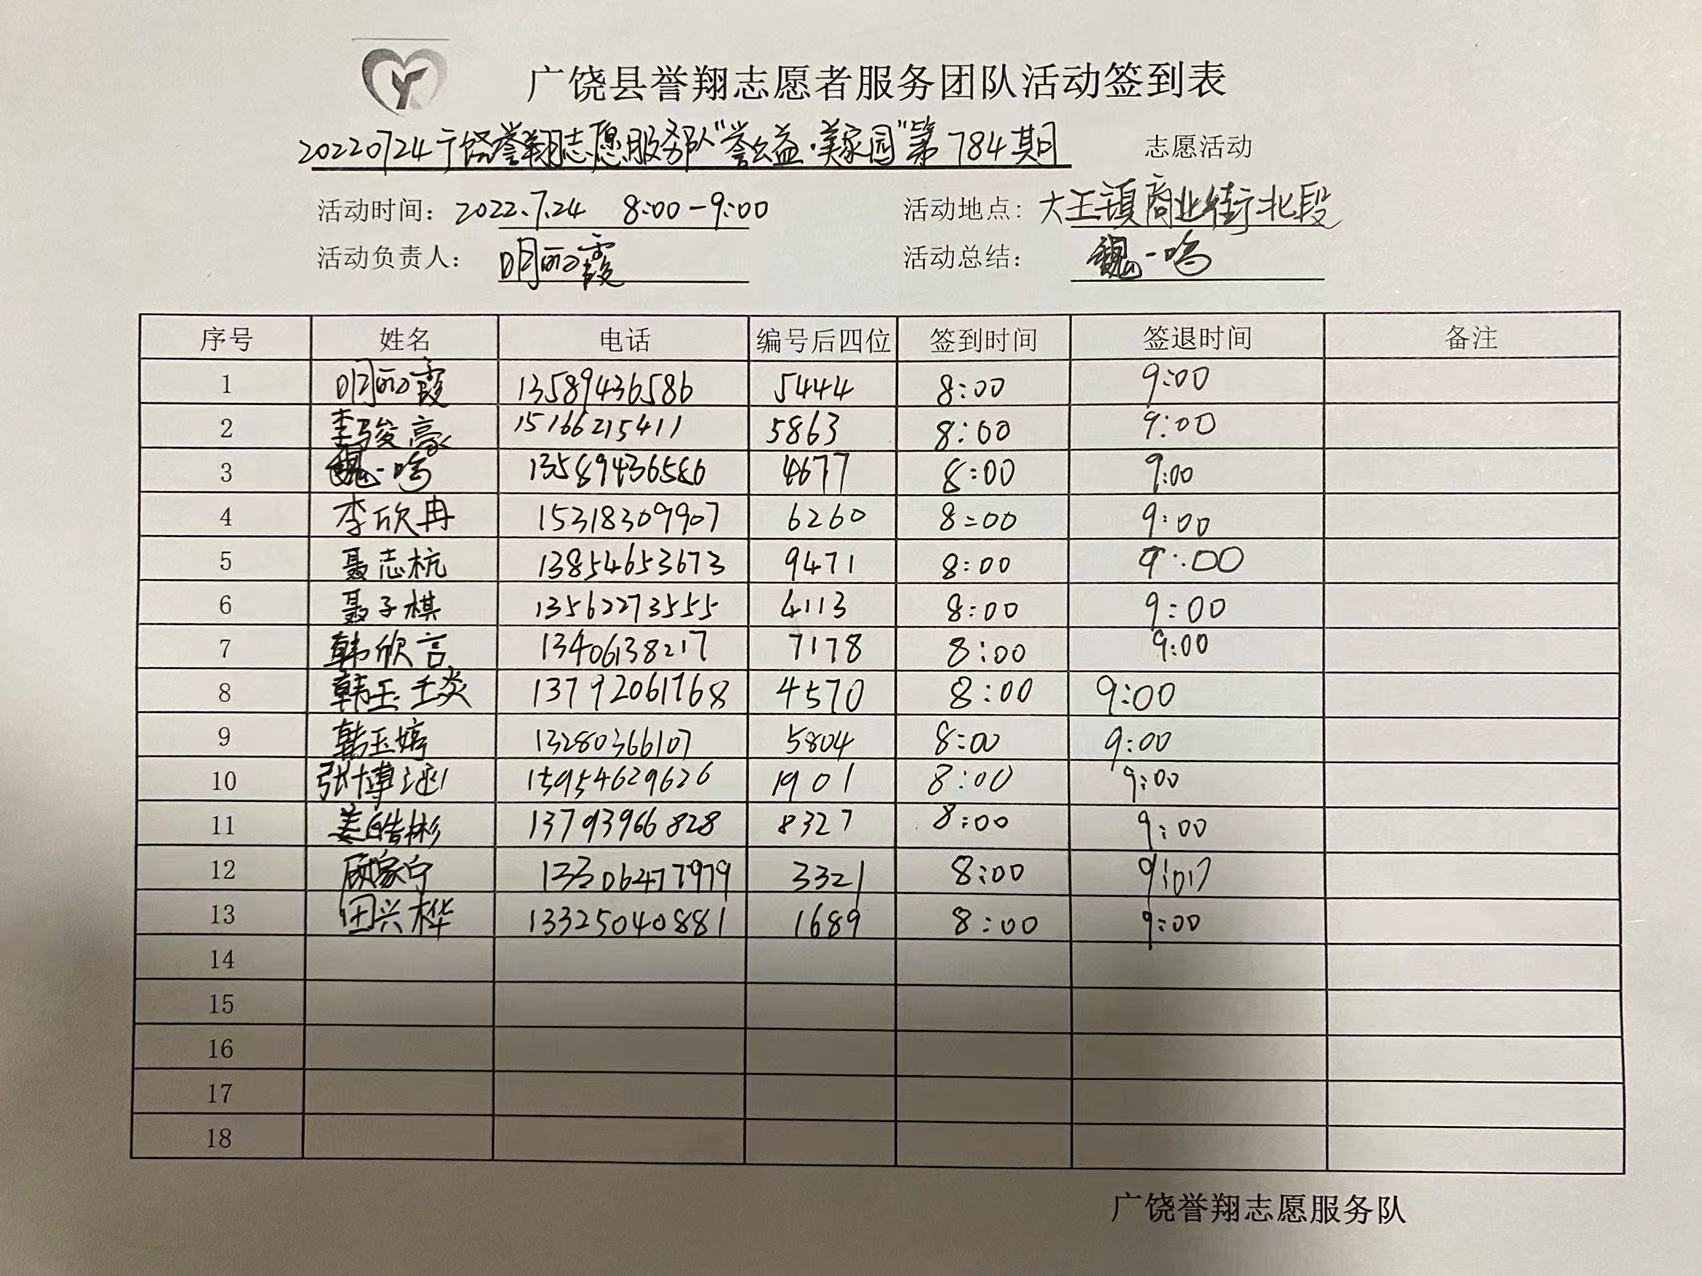 广饶县誉翔志愿者服务团队活动签到表
20220724广饶誉翔志愿服务队“誉公益·美家园”第784期 志愿活动
活动时间: 2022.7.24 8:00-9:00 活动地点: 大王镇商业街北段
活动负责人: 明丽霞 活动总结: 魏一鸣
序号 姓名 电话 编号后四位 签到时间 签退时间 备注
1 明丽霞 13589436586 5444 8:00 9:00
2 李骏豪 15166215411 5863 8:00 9:00
3 魏一鸣 13589436586 4677 8:00 9:00
4 李欣冉 15318309907 6260 8:00 9:00
5 聂志杭 13854653673 9471 8:00 9:00
6 聂子棋 13562273555 4113 8:00 9:00
7 韩欣言 13406138217 7178 8:00 9:00
8 韩玉琰 13792061768 4570 8:00 9:00
9 韩玉婷 13280366107 5804 8:00 9:00
10 张博涵 15954629626 1901 8:00 9:00
11 姜皓彬 13793966828 8327 8:00 9:00
12 顾家宁 13306477979 3321 8:00 9:00
13 田兴桦 13325040881 1689 8:00 9:00
14
15
16
17
18
广饶誉翔志愿服务队